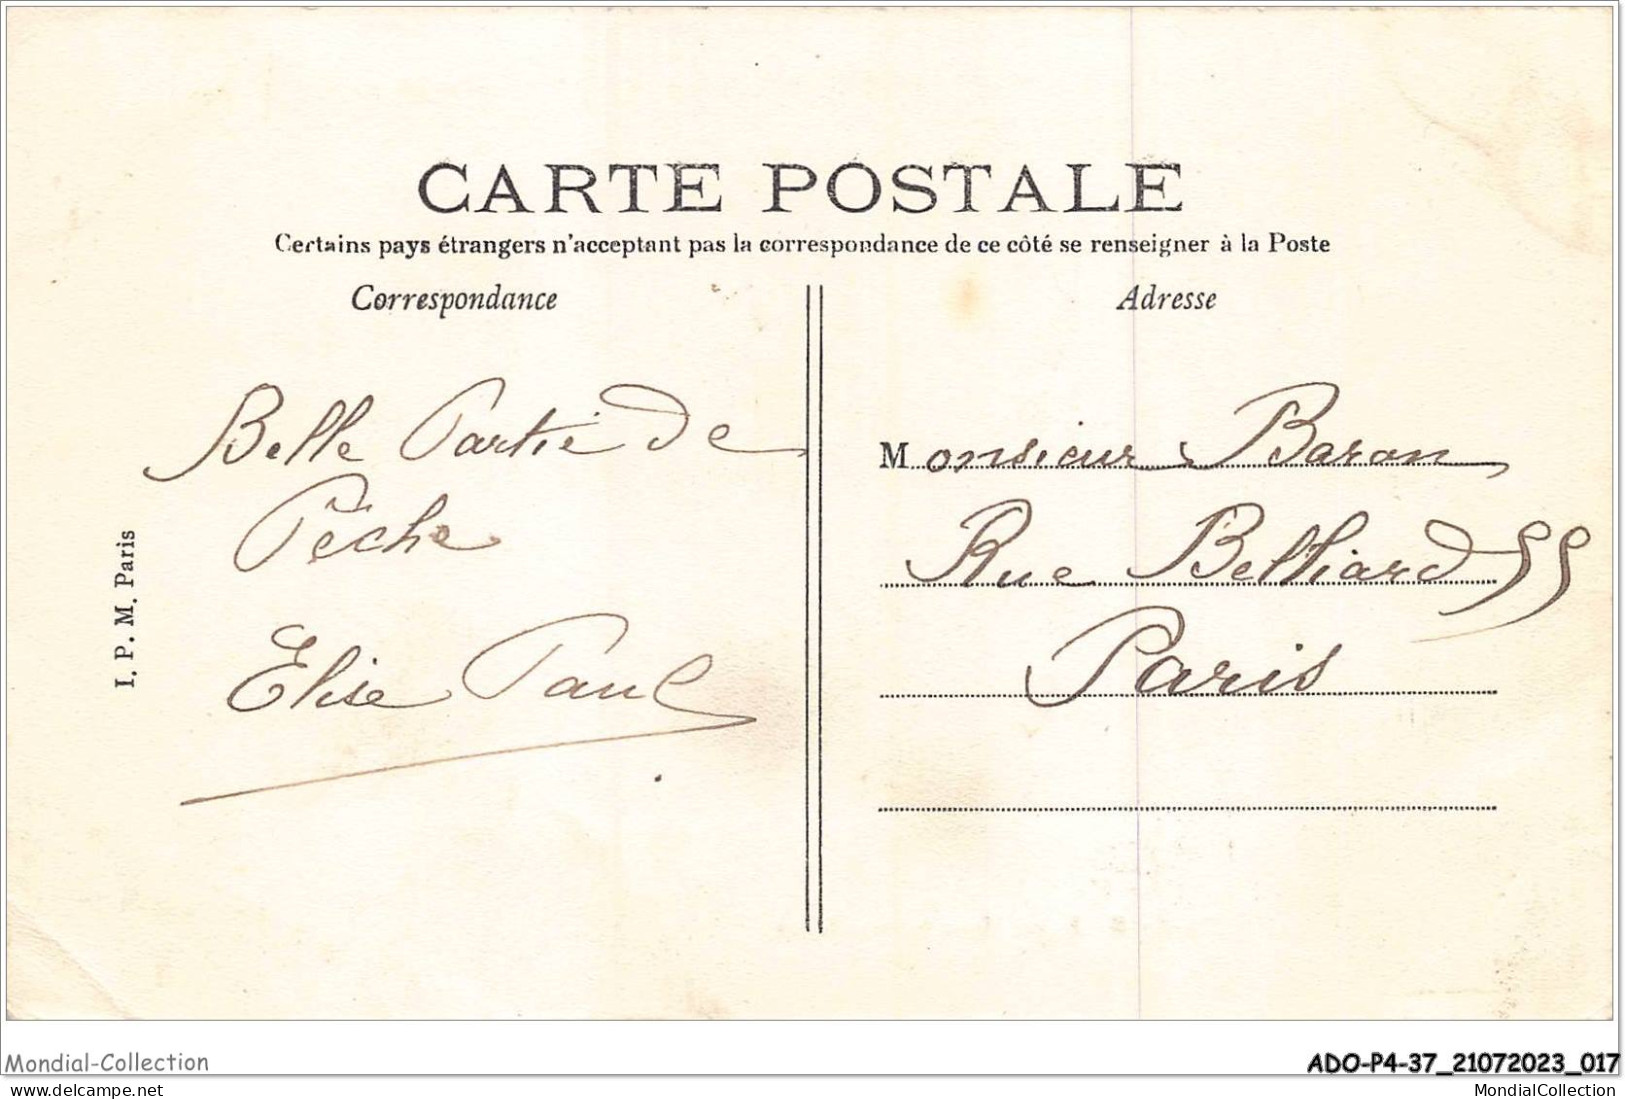 CARTE POSTALE
Certains pays étrangers n'acceptant pas la correspondance de ce côté se renseigner à la Poste
Correspondance
Belle Partie de
Pêche
Elise Paul
I. P. M. Paris
Adresse
Monsieur Baron
Rue Belliard 55
Paris
Mondial-Collection
ADO-P4-37_21072023_017
www.delcampe.net
MondialCollection